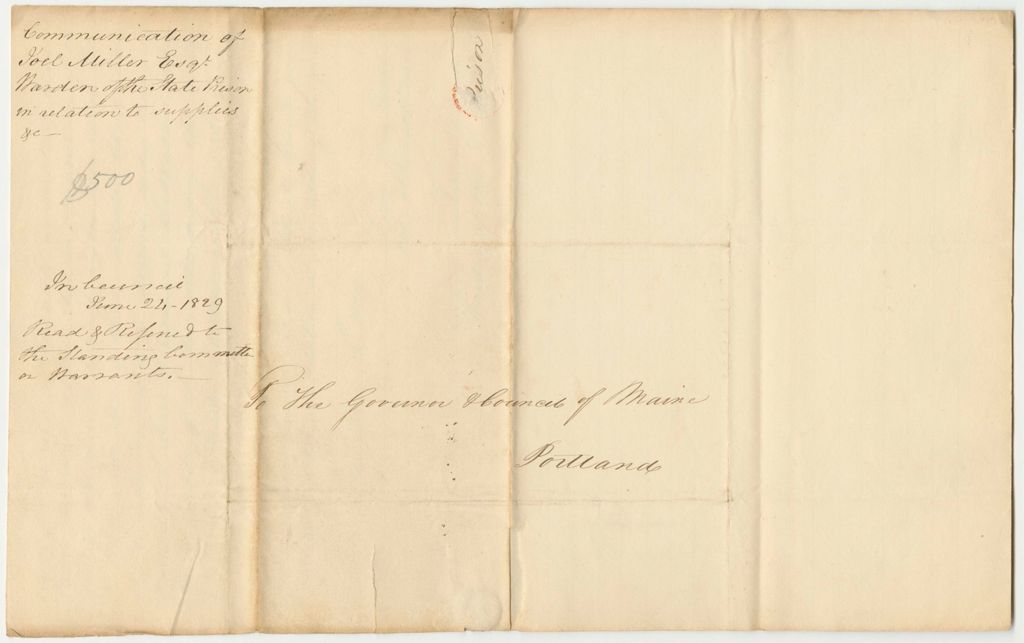 Communication of
Joel Miller Esqr.
Warden of the State Prison
in relation to supplies
&c —
$500
In Council
June 24 - 1829
Read & Referred to
the Standing Committee
on Warrants. —
Prison
To The Governor & Council of Maine
Portland